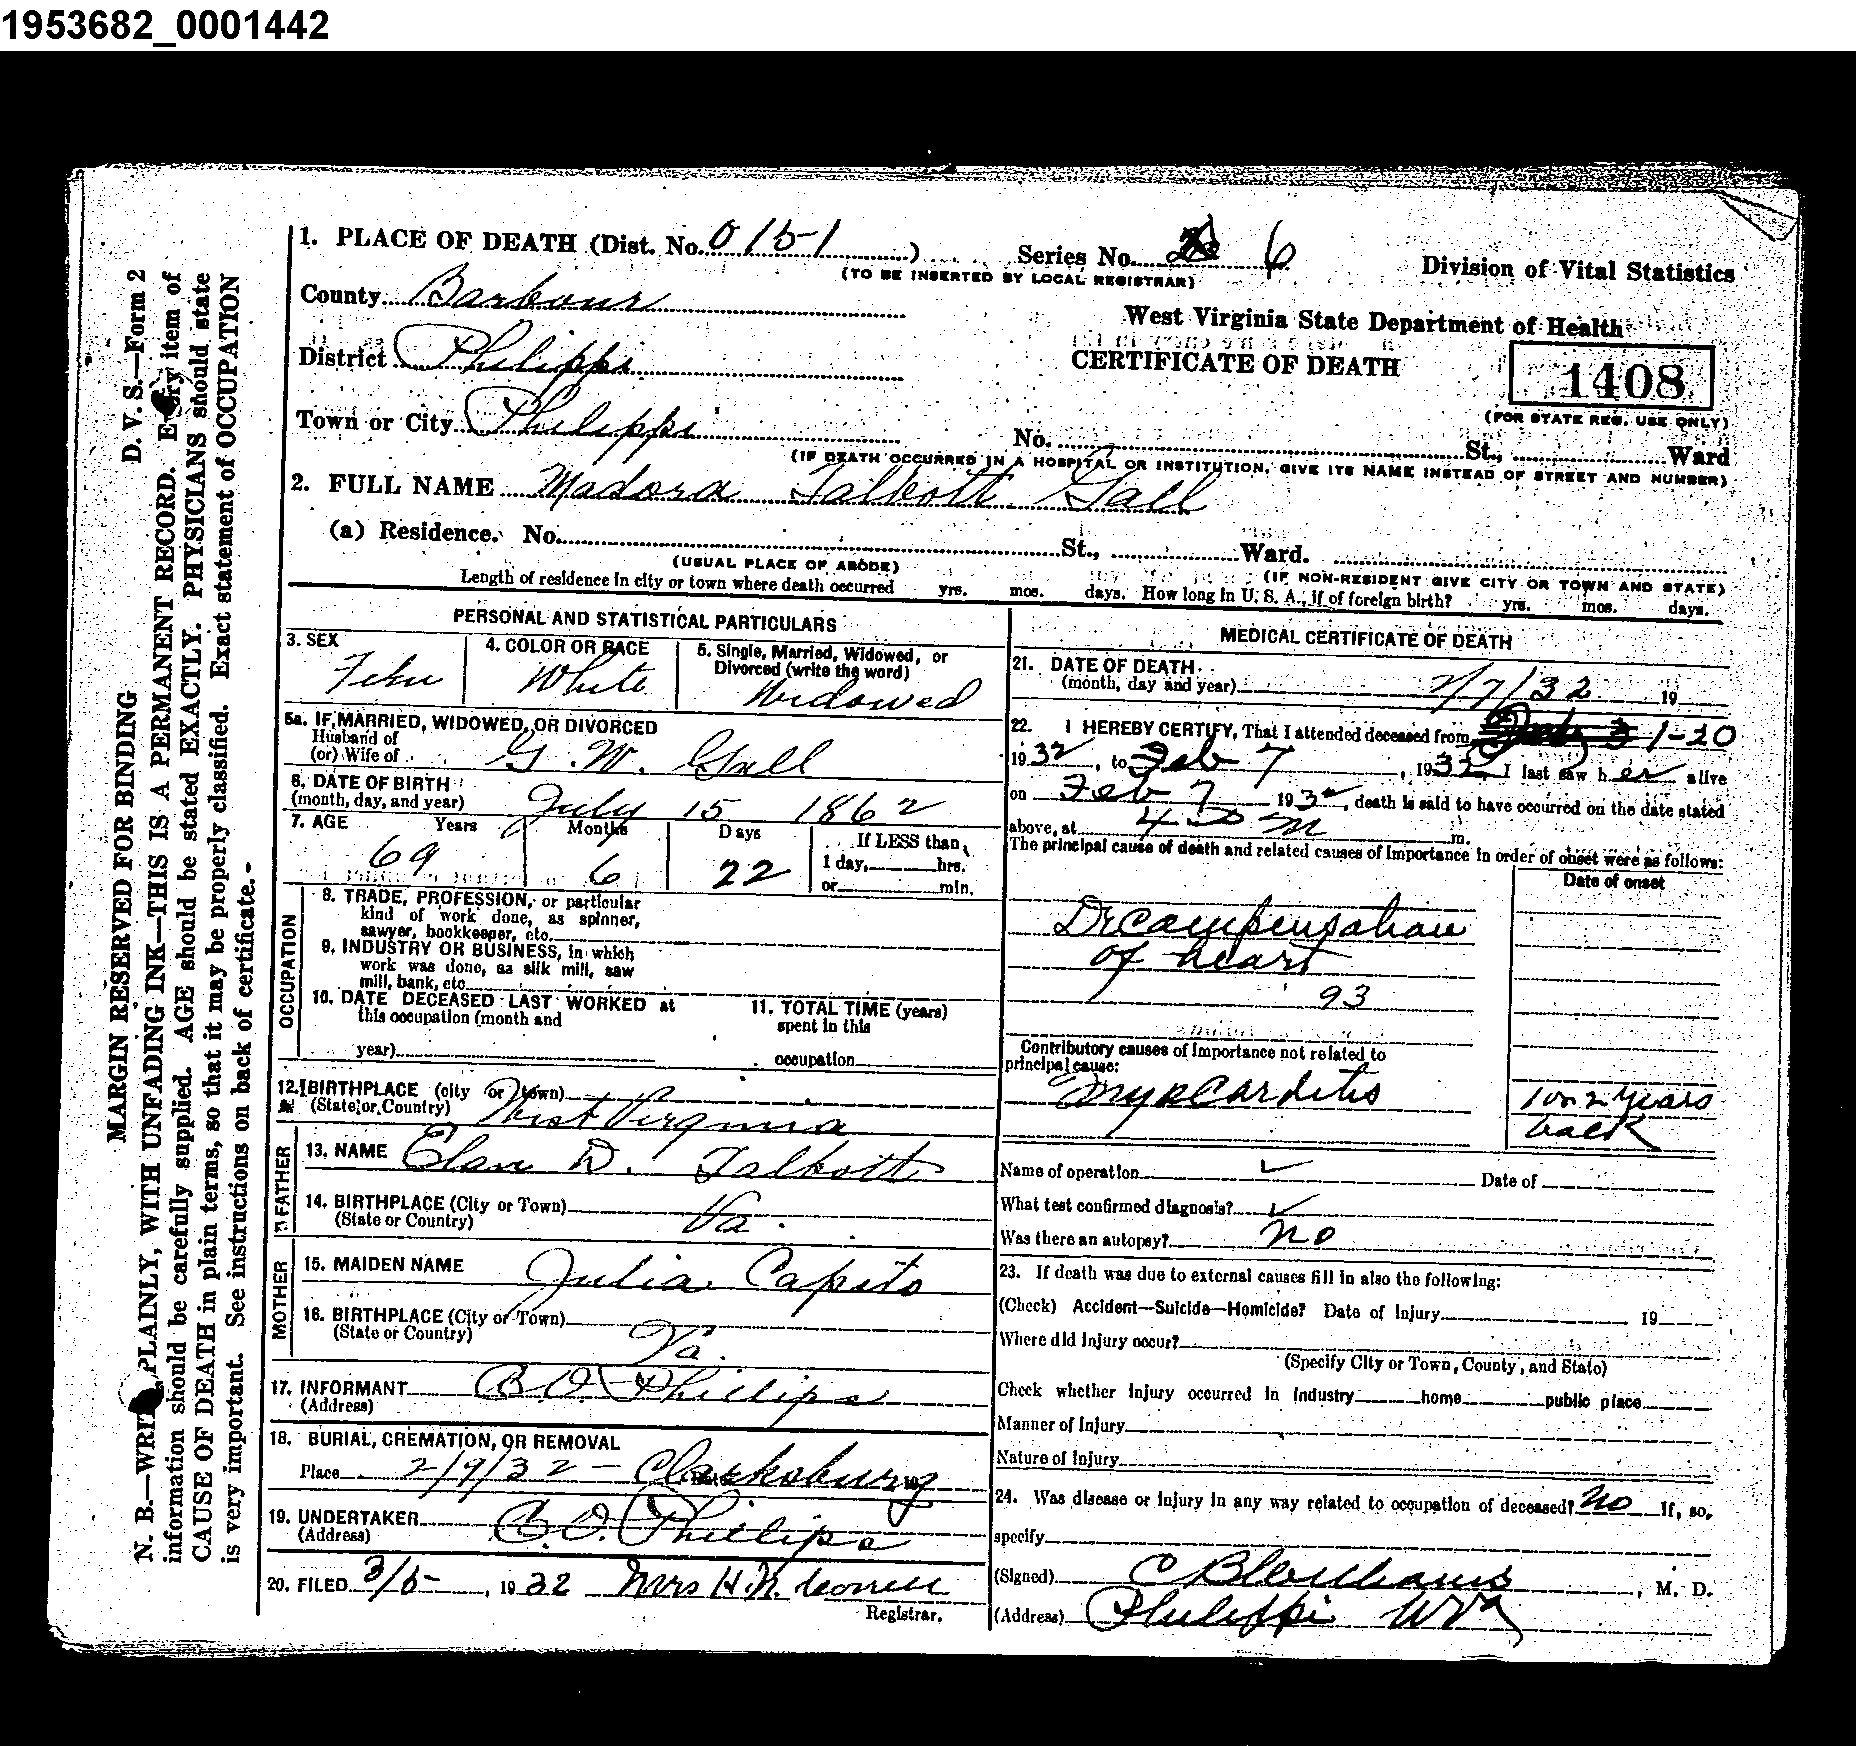 1953682_0001442
MARGIN RESERVED FOR BINDING D. V. S.—Form 2
N. B.—WRITE PLAINLY, WITH UNFADING INK—THIS IS A PERMANENT RECORD. Every item of
information should be carefully supplied. AGE should be stated EXACTLY. PHYSICIANS should state
CAUSE OF DEATH in plain terms, so that it may be properly classified. Exact statement of OCCUPATION
is very important. See instructions on back of certificate.
1. PLACE OF DEATH (Dist. No. 015-1 ) Series No. 6
(TO BE INSERTED BY LOCAL REGISTRAR)
Division of Vital Statistics
County Barbour
West Virginia State Department of Health
District Philippi
CERTIFICATE OF DEATH
1408
(FOR STATE REG. USE ONLY)
Town or City Philippi No. St., Ward
(IF DEATH OCCURRED IN A HOSPITAL OR INSTITUTION, GIVE ITS NAME INSTEAD OF STREET AND NUMBER)
2. FULL NAME Madora Talbott Gall
(a) Residence. No. St., Ward.
(USUAL PLACE OF ABODE) (IF NON-RESIDENT GIVE CITY OR TOWN AND STATE)
Length of residence in city or town where death occurred yrs. mos. days. How long in U. S. A., if of foreign birth? yrs. mos. days.
PERSONAL AND STATISTICAL PARTICULARS
3. SEX 4. COLOR OR RACE 5. Single, Married, Widowed, or
Divorced (write the word)
White Widowed
5a. IF MARRIED, WIDOWED, OR DIVORCED
Husband of
(or) Wife of G. W. Gall
6. DATE OF BIRTH
(month, day, and year) July 15 1862
7. AGE Years Months Days If LESS than
69 6 22 1 day, hrs.
or min.
OCCUPATION
8. TRADE, PROFESSION, or particular
kind of work done, as spinner,
sawyer, bookkeeper, etc.
9. INDUSTRY OR BUSINESS, in which
work was done, as silk mill, saw
mill, bank, etc.
10. DATE DECEASED LAST WORKED at
this occupation (month and
year)
11. TOTAL TIME (years)
spent in this
occupation
12. BIRTHPLACE (city or town)
(State or Country) West Virginia
FATHER
13. NAME Elam D. Talbott
14. BIRTHPLACE (City or Town)
(State or Country) Va.
MOTHER
15. MAIDEN NAME Julia Capito
16. BIRTHPLACE (City or Town)
(State or Country) Va.
17. INFORMANT C. D. Phillips
(Address)
18. BURIAL, CREMATION, OR REMOVAL
Place 2/9/32 - Clarksburg
19. UNDERTAKER C. D. Phillips
(Address)
20. FILED 3/5- , 1932 Mrs H. K.
Registrar.
MEDICAL CERTIFICATE OF DEATH
21. DATE OF DEATH
(month, day and year) 2/7/32 19
22. I HEREBY CERTIFY, That I attended deceased from 1-20
1932, to Feb 7 , 1932, I last saw her alive
on Feb 7 1932, death is said to have occurred on the date stated
above, at m.
The principal cause of death and related causes of importance in order of onset were as follows:
Date of onset
Decompensation
of heart
93
Contributory causes of importance not related to
principal cause:
Myocarditis 1 or 2 years
back
Name of operation ✓ Date of
What test confirmed diagnosis? ✓
Was there an autopsy? no
23. If death was due to external causes fill in also the following:
(Check) Accident—Suicide—Homicide? Date of Injury 19
Where did injury occur?
(Specify City or Town, County, and State)
Check whether injury occurred in industry home public place
Manner of Injury
Nature of Injury
24. Was disease or injury in any way related to occupation of deceased? no If, so,
specify
(Signed) , M. D.
(Address) Philippi WVa